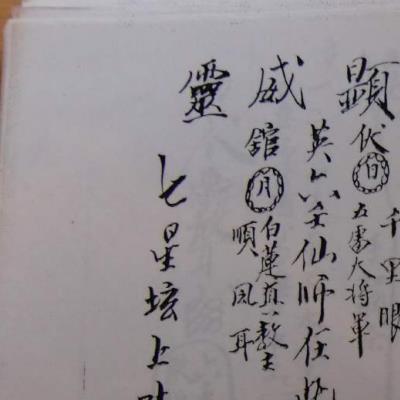 顯威靈
千里眼
伏日五雷大將軍
英六壬仙師
館月白蓮真教主
順風耳
七星坛上